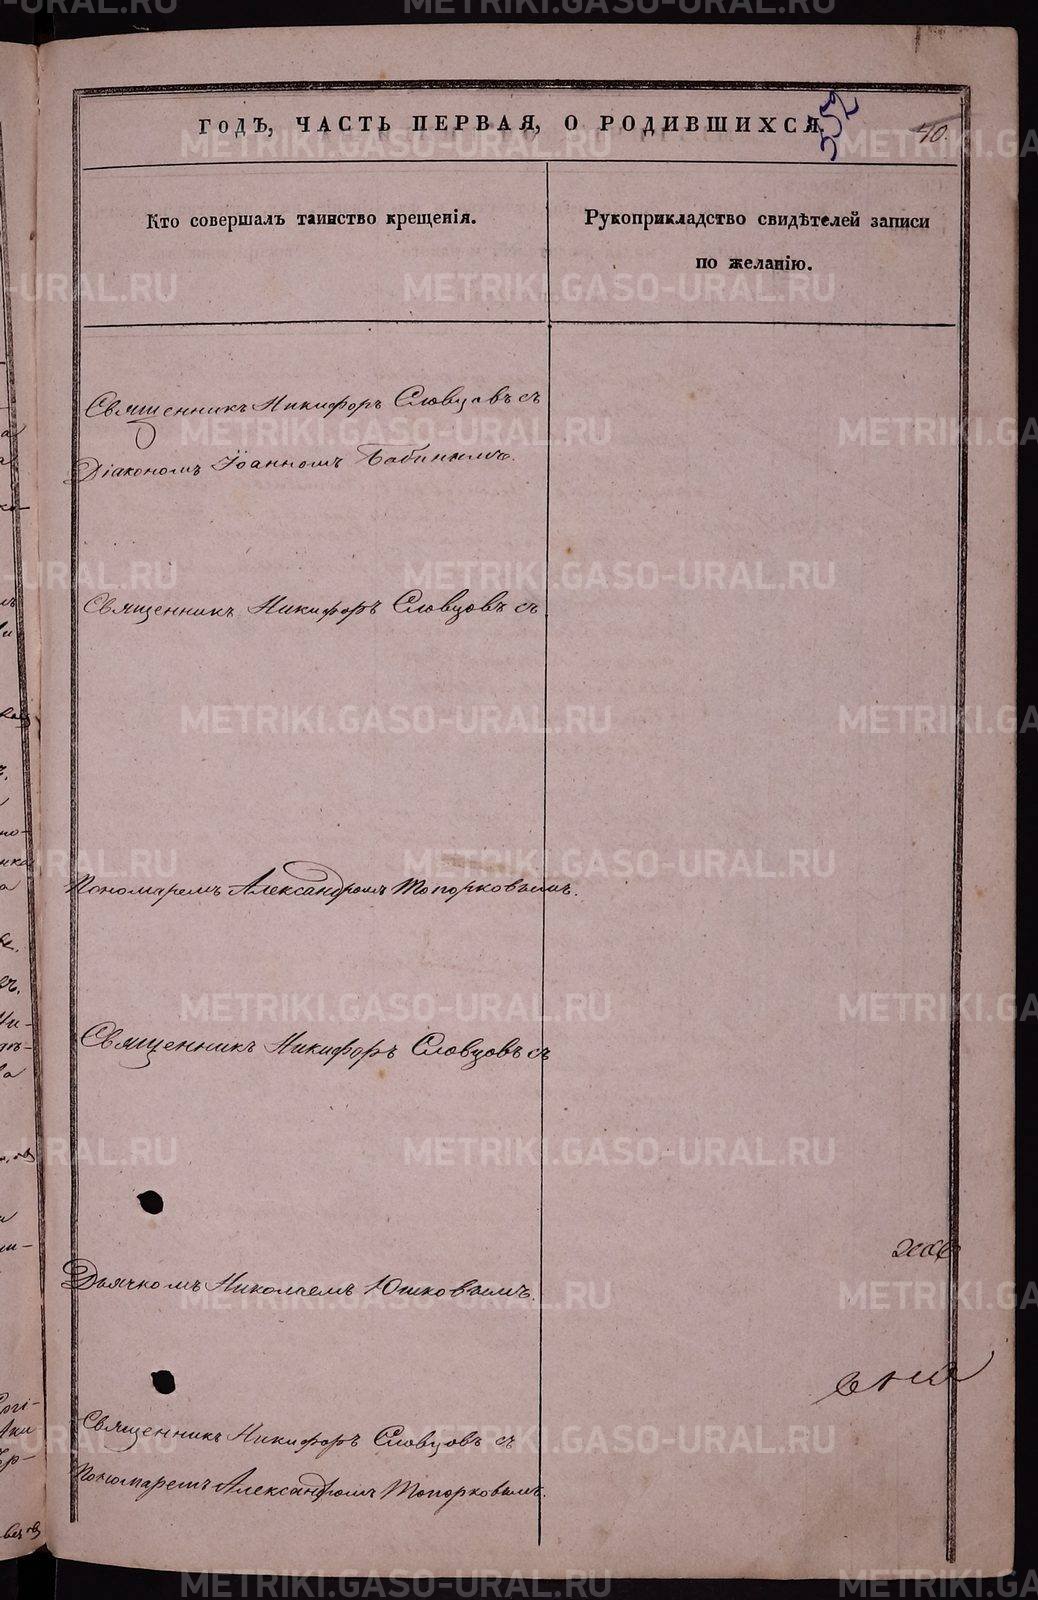 ГОДЪ, ЧАСТЬ ПЕРВАЯ, О РОДИВШИХСЯ.
332
40.
Кто совершалъ таинство крещенія.
Рукоприкладство свидѣтелей записи
по желанію.
Священникъ Никифоръ Словцовъ съ
Діакономъ Іоанномъ Бабинымъ.
Священникъ Никифоръ Словцовъ съ
Пономаремъ Александромъ Топорковымъ.
Священникъ Никифоръ Словцовъ съ
Дьячкомъ Николаемъ Юшковымъ.
Священникъ Никифоръ Словцовъ съ
Пономаремъ Александромъ Топорковымъ.
METRIKI.GASO-URAL.RU